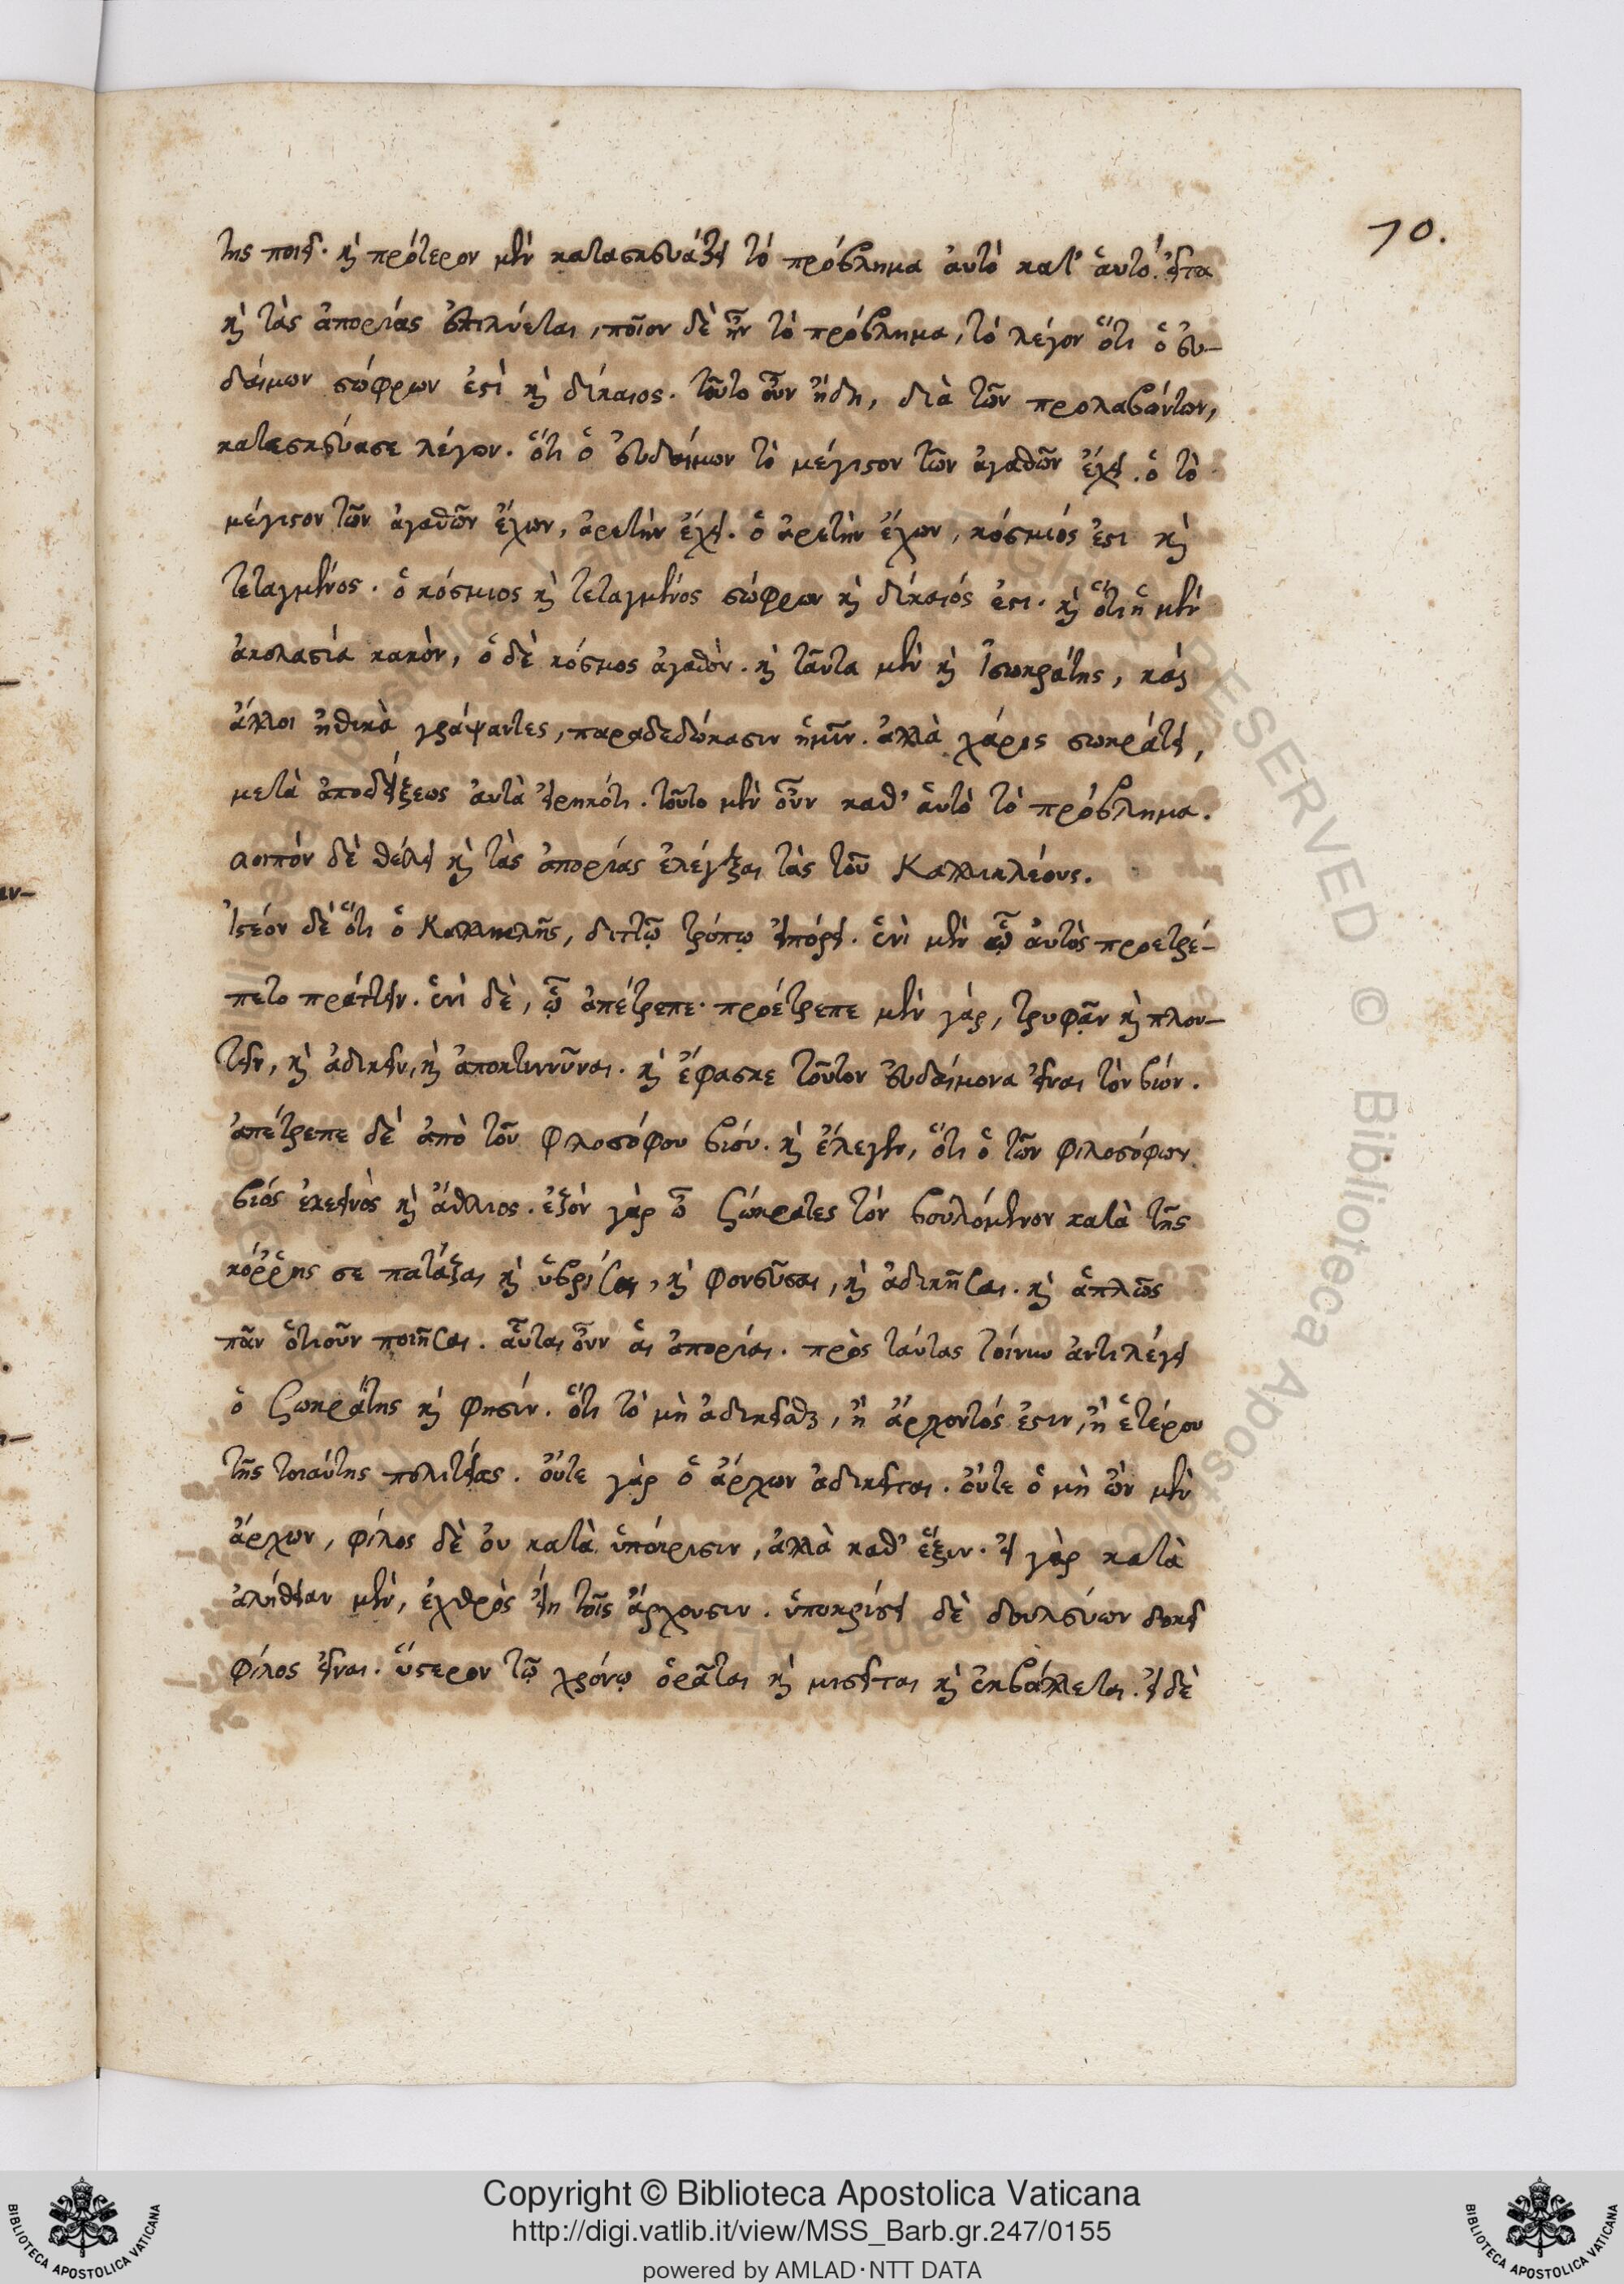 70.
της ποιεῖ. καὶ πρότερον μὲν κατασκευάζει τὸ πρόβλημα αὐτὸ κατ' ἁυτό. εἶτα
καὶ τὰς ἀπορίας ἐπιλύεται, ποῖον δὲ ἦν τὸ πρόβλημα, τὸ λέγον ὅτι ὁ ευ-
δαίμων σώφρων ἐστὶ καὶ δίκαιος. τοῦτο οὖν ἤδη, διὰ τῶν προλαβόντων,
κατεσκεύασε λέγων. ὅτι ὁ εὐδαίμων τὸ μέγιστον τῶν ἀγαθῶν ἔχει. ὁ τὸ
μέγιστον τῶν ἀγαθῶν ἔχων, ἀρετὴν ἔχει. ὁ ἀρετὴν ἔχων, κόσμιός ἐστι καὶ
τεταγμένος. ὁ κόσμιος καὶ τεταγμένος σώφρων καὶ δίκαιός ἐστι. καὶ ὅτι ἡ μὲν
ἀκολασία κακὸν, ὁ δὲ κόσμος ἀγαθὸν. καὶ ταῦτα μὲν καὶ Ἰσωκράτης, καὶ
ἄλλοι ἠθικὰ γράψαντες, παραδεδώκασιν ἡμῖν. ἀλλὰ χάρις σωκράτει,
μετὰ ἀποδείξεως ἀυτὰ εἰρηκότι. τοῦτο μὲν οὖν καθ' ἁυτὸ τὸ πρόβλημα.
λοιπόν δὲ θέλει καὶ τὰς ἀπορίας ἐλέγξαι τὰς τοῦ Καλλικλέους.
Ἰστέον δὲ ὅτι ὁ Καλλικλῆς, διττῷ τρόπῳ ἠπόρει. ἑνὶ μὲν ᾧ ἀυτὸς προετρέ-
πετο πράττειν. ἑνὶ δὲ, ᾧ ἀπέτρεπε. προέτρεπε μὲν γάρ, τρυφᾷν καὶ πλου-
τεῖν, καὶ ἀδικεῖν, καὶ ἀποκτιννῦναι. καὶ ἔφασκε τοῦτον εὐδαίμονα εἶναι τὸν βίόν.
ἀπέτρεπε δὲ ἀπὸ τοῦ φιλοσόφου βίου. καὶ ἔλεγεν, ὅτι ὁ τῶν φιλοσόφων
βίός ἐλεεινὸς καὶ ἄθλιος. ἐξὸν γὰρ ὦ Σώκρατες τὸν βουλόμενον κατὰ τῆς
κόῤῥης σε πατάξαι καὶ ὑβρίσαι, καὶ φονεῦσαι, καὶ ἀδικῆσαι. καὶ ἁπλῶς
πᾶν ὁτιοῦν ποιῆσαι. αὗται οὖν ἁι ἀπορίαι. πρὸς ταύτας τοίνυν ἀντιλέγει
ὁ Σωκράτης καὶ φησίν. ὅτι τὸ μὴ ἀδικεῖσθαι, ἢ ἄρχοντός ἐστιν, ἢ ἑτέρου
τῆς τοιαύτης πολιτείας. ὄυτε γὰρ ὁ ἄρχων ἀδικεῖται. ὄυτε ὁ μὴ ὢν μὲν
ἄρχων, φίλος δὲ ὀυ κατὰ ὑπόκρισιν, ἀλλὰ καθ' ἕξιν. εἰ γὰρ κατὰ
ἀλήθειαν μὲν, ἐχθρὸς εἴη τοῖς ἄρχουσιν. ὑποκρίσει δὲ δουλεύων δοκεῖ
φίλος εἶναι. ὕστερον τῷ χρόνῳ ὁρᾶται καὶ μισεῖται καὶ ἐκβάλλεται. εἰ δὲ
Copyright © Biblioteca Apostolica Vaticana
http://digi.vatlib.it/view/MSS_Barb.gr.247/0155
powered by AMLAD·NTT DATA